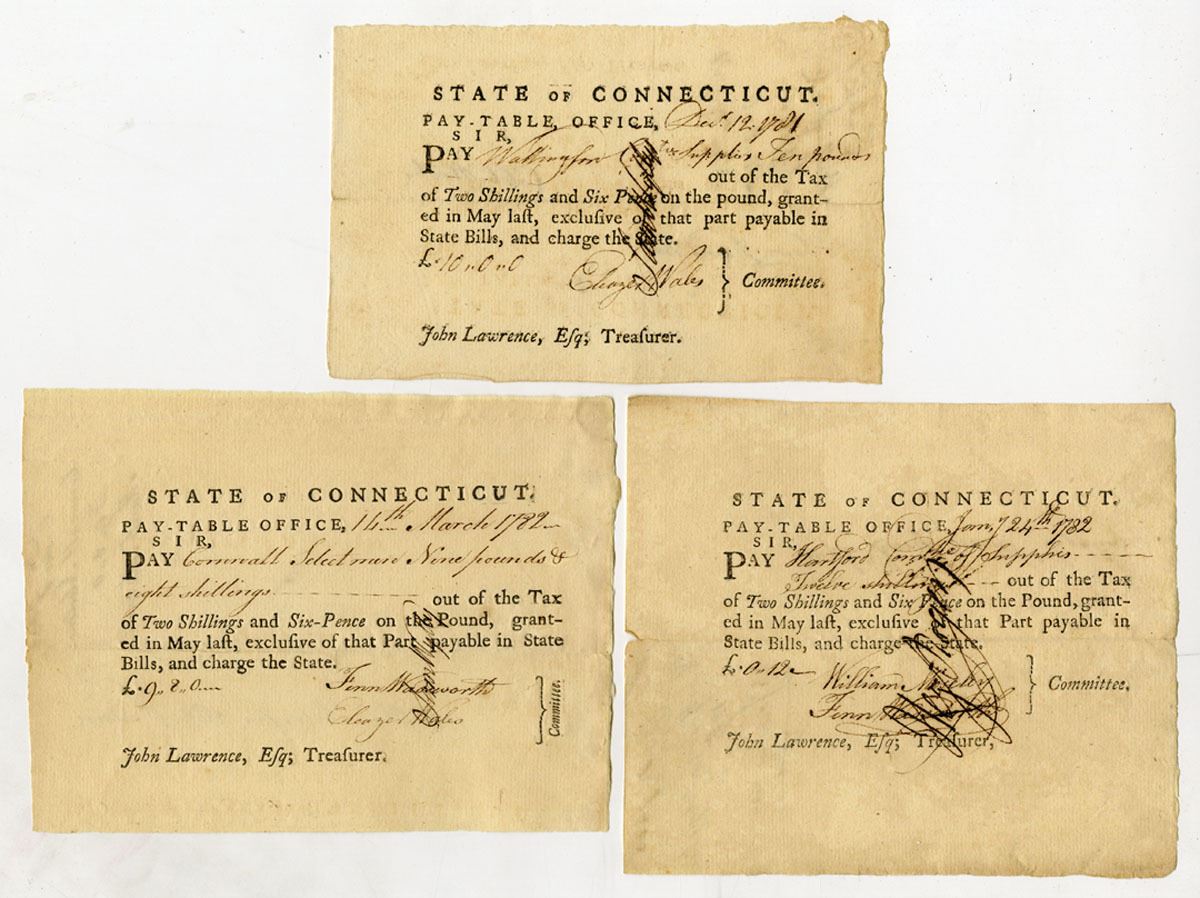 STATE OF CONNECTICUT.
PAY-TABLE OFFICE, Decr. 12. 1781
SIR,
PAY Wallingford Comtee Supplies Ten pounds
out of the Tax
of Two Shillings and Six Pence on the pound, grant-
ed in May laſt, excluſive of that part payable in
State Bills, and charge the State.
£.10„0„0
Eleazer Wales } Committee.
John Lawrence, Eſq; Treaſurer.
STATE OF CONNECTICUT.
PAY-TABLE OFFICE, 14th March 1782
SIR,
PAY Cornwall Select men Nine pounds &
eight shillings out of the Tax
of Two Shillings and Six-Pence on the Pound, grant-
ed in May laſt, excluſive of that Part payable in State
Bills, and charge the State.
£.9„8„0
Fenn Wadsworth
Eleazer Wales
} Committee.
John Lawrence, Eſq; Treaſurer.
STATE OF CONNECTICUT.
PAY-TABLE OFFICE, Jany 24th 1782
SIR,
PAY Hartford Comtee of Supplies
Twelve shillings out of the Tax
of Two Shillings and Six Pence on the Pound, grant-
ed in May laſt, excluſive of that Part payable in
State Bills, and charge the State.
£.0„12
William Moseley
Fenn Wadsworth
} Committee.
John Lawrence, Eſq; Treaſurer,